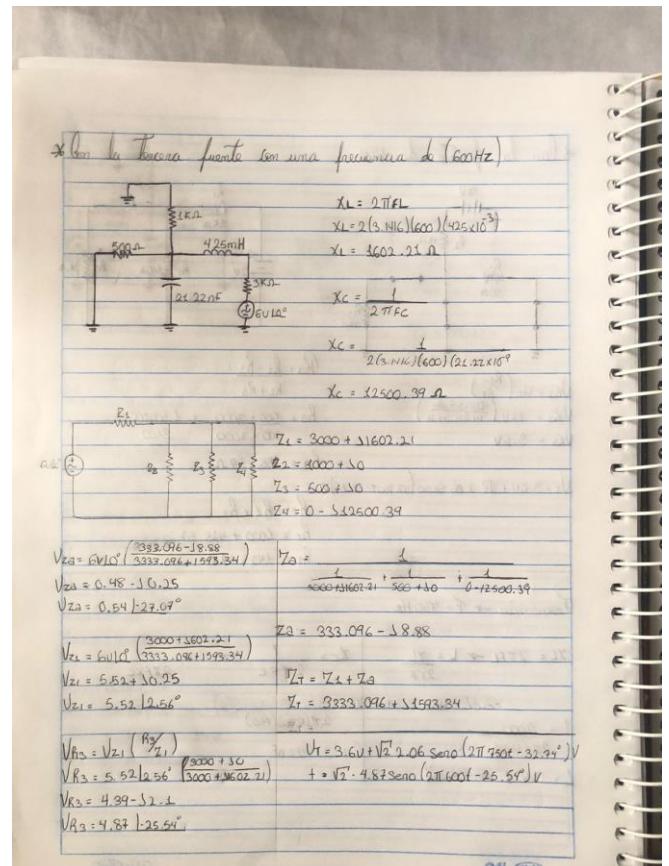 * Con la tercera fuente con una frecuencia de (600Hz)
1KΩ
500Ω
425mH
3KΩ
21.22nF
6V∠0°
XL = 2πFL
XL = 2(3.1416)(600)(425x10⁻³)
XL = 1602.21 Ω
Xc = 1 / 2πFC
Xc = 1 / 2(3.1416)(600)(21.22x10⁻⁹
Xc = 12500.39 Ω
Z1
Z2
Z3
Z4
Z1 = 3000 + J1602.21
Z2 = 1000 + J0
Z3 = 500 + J0
Z4 = 0 - J12500.39
Vza = 6V∠0° (333.096 - J8.88 / 3333.096 + 1593.34)
Vza = 0.48 - J0.25
Vza = 0.54 ∠-27.07°
Vz1 = 6V∠0° (3000 + J1602.21 / 3333.096 + 1593.34)
Vz1 = 5.52 + J0.25
Vz1 = 5.52 ∠2.56°
VR3 = Vz1 (R3/Z1)
VR3 = 5.52 ∠2.56° (3000 + J0 / 3000 + J1602.21)
VR3 = 4.39 - J2.1
VR3 = 4.87 ∠-25.54°
Za = 1 / 1/1000+J1602.21 + 1/500 + J0 + 1/0-12500.39
Za = 333.096 - J8.88
ZT = Z1 + Za
ZT = 3333.096 + J1593.34
VT = 3.6V + √2 2.06 seno (2π750t - 32.74°) V
+ √2 · 4.87 seno (2π600t - 25.54°) V